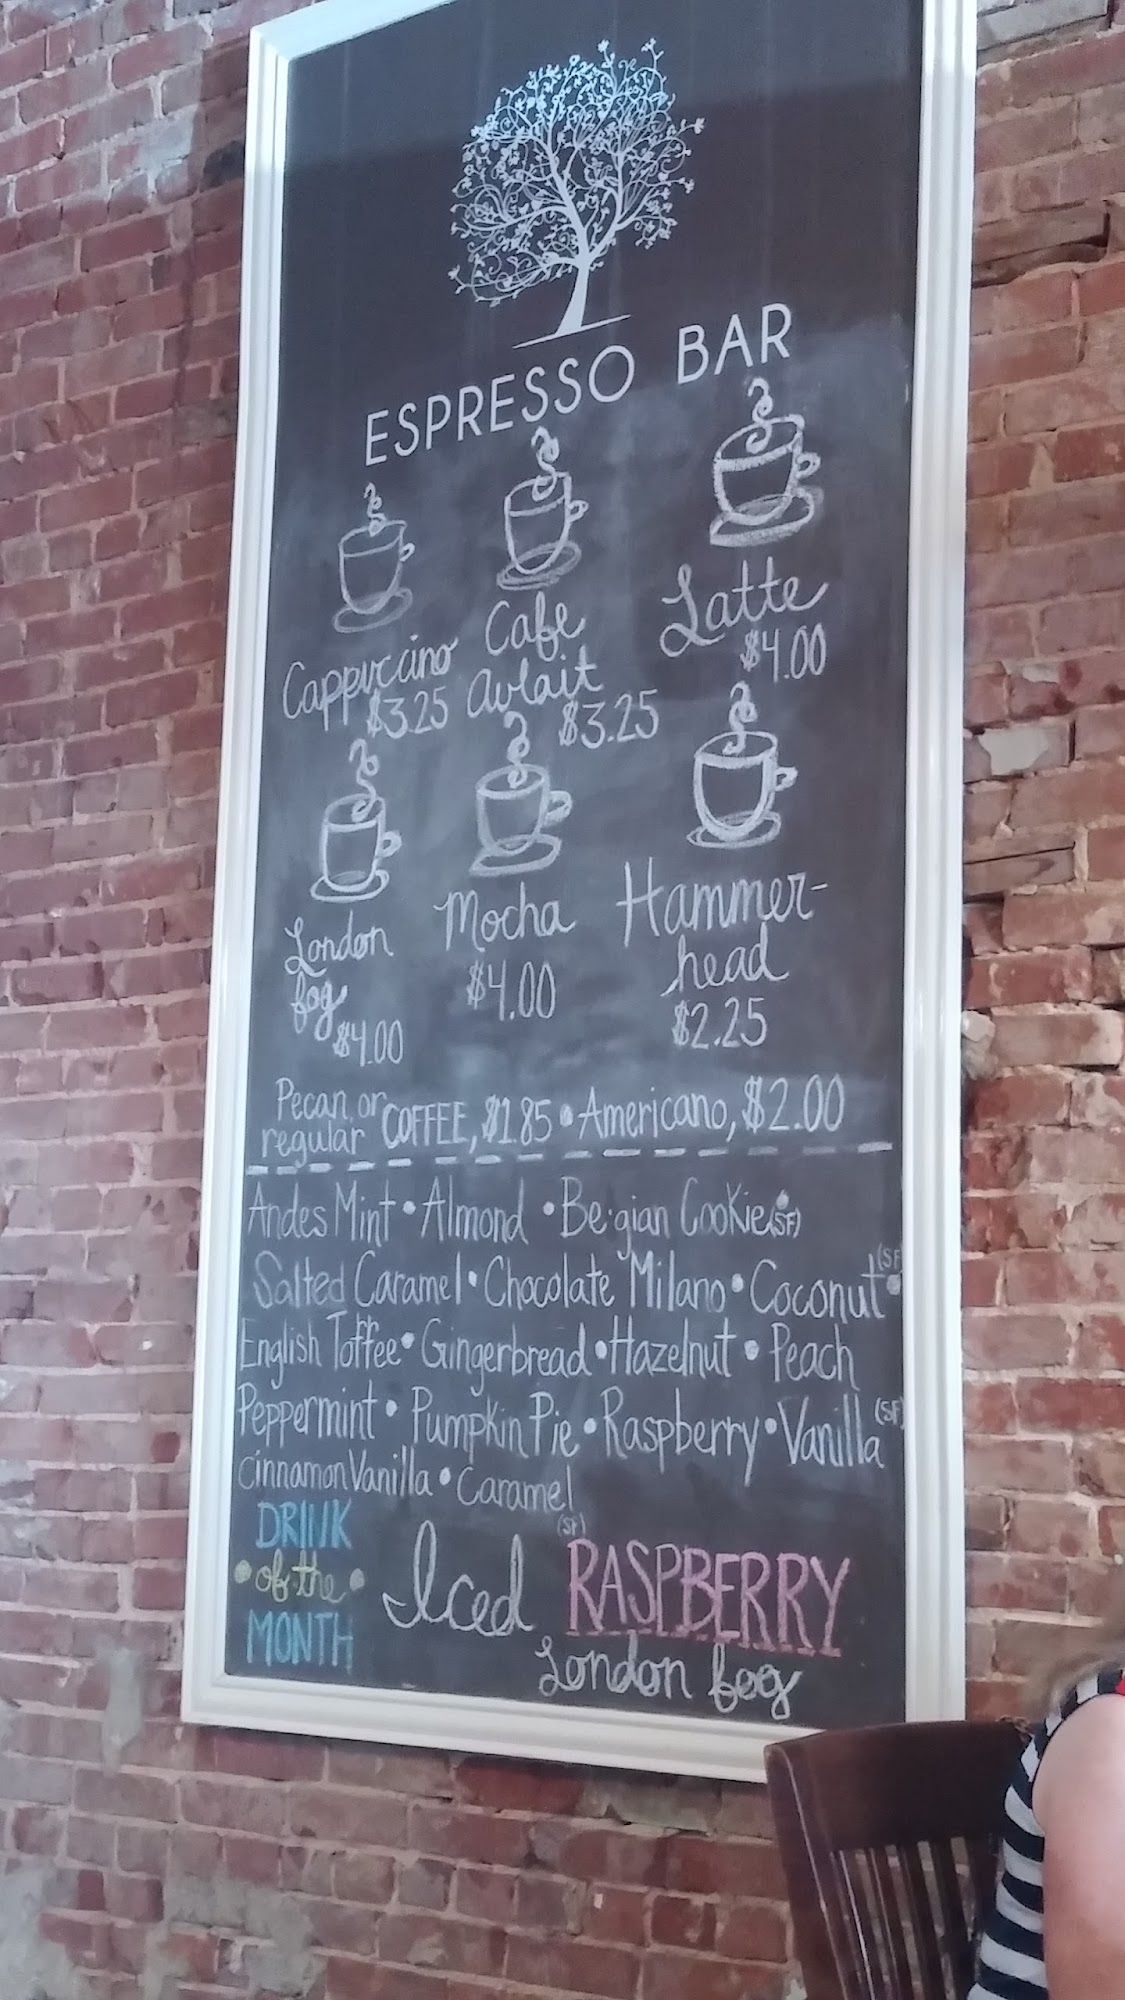 ESPRESSO BAR
Cappuccino
$3.25
Cafe
Aulait
$3.25
Latte
$4.00
London
fog
$4.00
Mocha
$4.00
Hammer-
head
$2.25
Pecan or
regular COFFEE, $1.85 • Americano, $2.00
Andes Mint • Almond • Belgian Cookie (SF)
Salted Caramel • Chocolate Milano • Coconut (SF) •
English Toffee • Gingerbread • Hazelnut • Peach
Peppermint • Pumpkin Pie • Raspberry • Vanilla (SF)
Cinnamon Vanilla • Caramel
(SF)
DRINK
• of the •
MONTH
Iced RASPBERRY
London fog